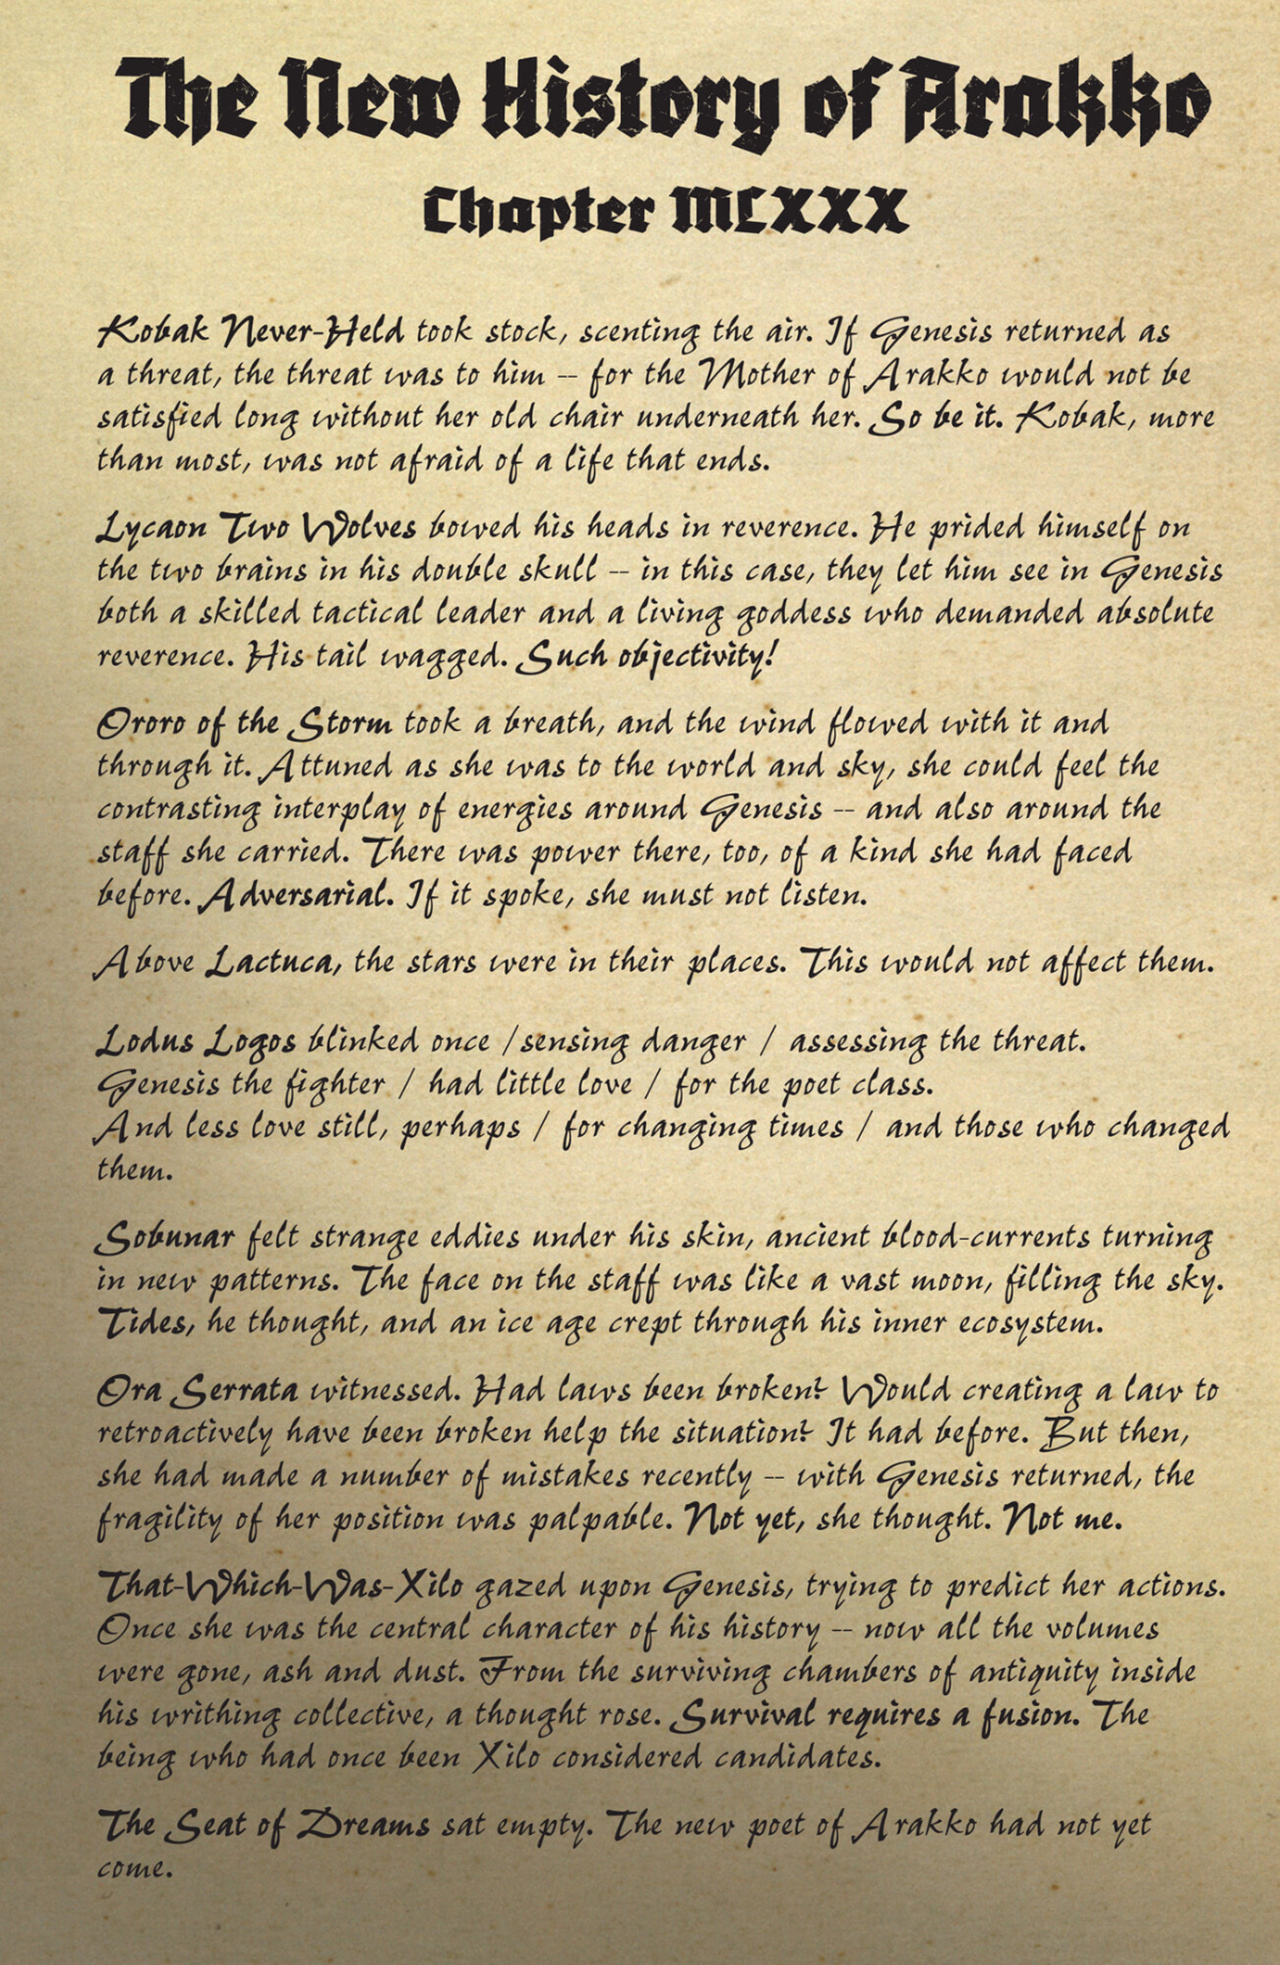 The New History of Arakko
Chapter MLXXX
Kobak Never-Held took stock, scenting the air. If Genesis returned as
a threat, the threat was to him -- for the Mother of Arakko would not be
satisfied long without her old chair underneath her. So be it. Kobak, more
than most, was not afraid of a life that ends.
Lycaon Two Wolves bowed his heads in reverence. He prided himself on
the two brains in his double skull -- in this case, they let him see in Genesis
both a skilled tactical leader and a living goddess who demanded absolute
reverence. His tail wagged. Such objectivity!
Ororo of the Storm took a breath, and the wind flowed with it and
through it. Attuned as she was to the world and sky, she could feel the
contrasting interplay of energies around Genesis -- and also around the
staff she carried. There was power there, too, of a kind she had faced
before. Adversarial. If it spoke, she must not listen.
Above Lactuca, the stars were in their places. This would not affect them.
Lodus Logos blinked once /sensing danger / assessing the threat.
Genesis the fighter / had little love / for the poet class.
And less love still, perhaps / for changing times / and those who changed
them.
Sobunar felt strange eddies under his skin, ancient blood-currents turning
in new patterns. The face on the staff was like a vast moon, filling the sky.
Tides, he thought, and an ice age crept through his inner ecosystem.
Ora Serrata witnessed. Had laws been broken? Would creating a law to
retroactively have been broken help the situation? It had before. But then,
she had made a number of mistakes recently -- with Genesis returned, the
fragility of her position was palpable. Not yet, she thought. Not me.
That-Which-Was-Xilo gazed upon Genesis, trying to predict her actions.
Once she was the central character of his history -- now all the volumes
were gone, ash and dust. From the surviving chambers of antiquity inside
his writhing collective, a thought rose. Survival requires a fusion. The
being who had once been Xilo considered candidates.
The Seat of Dreams sat empty. The new poet of Arakko had not yet
come.